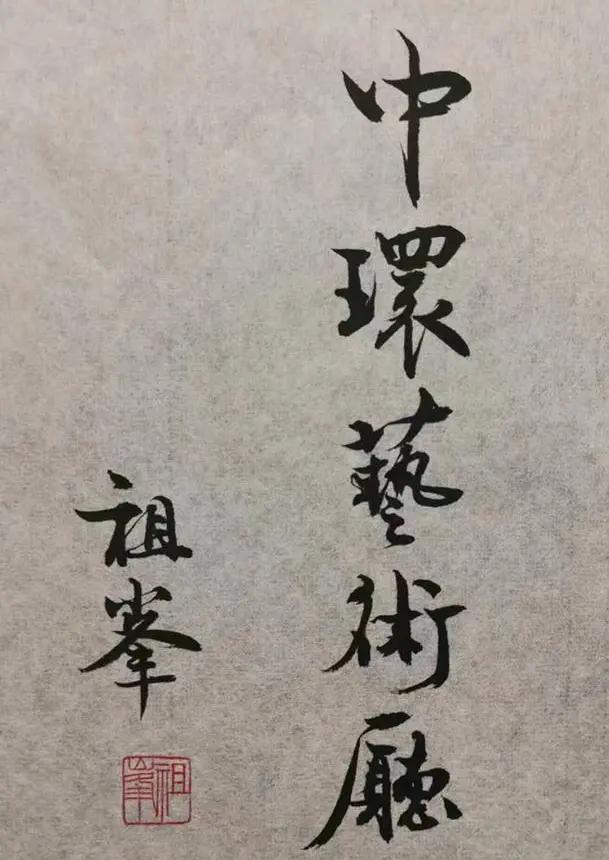 中環藝術廳
祖峯
祖峯